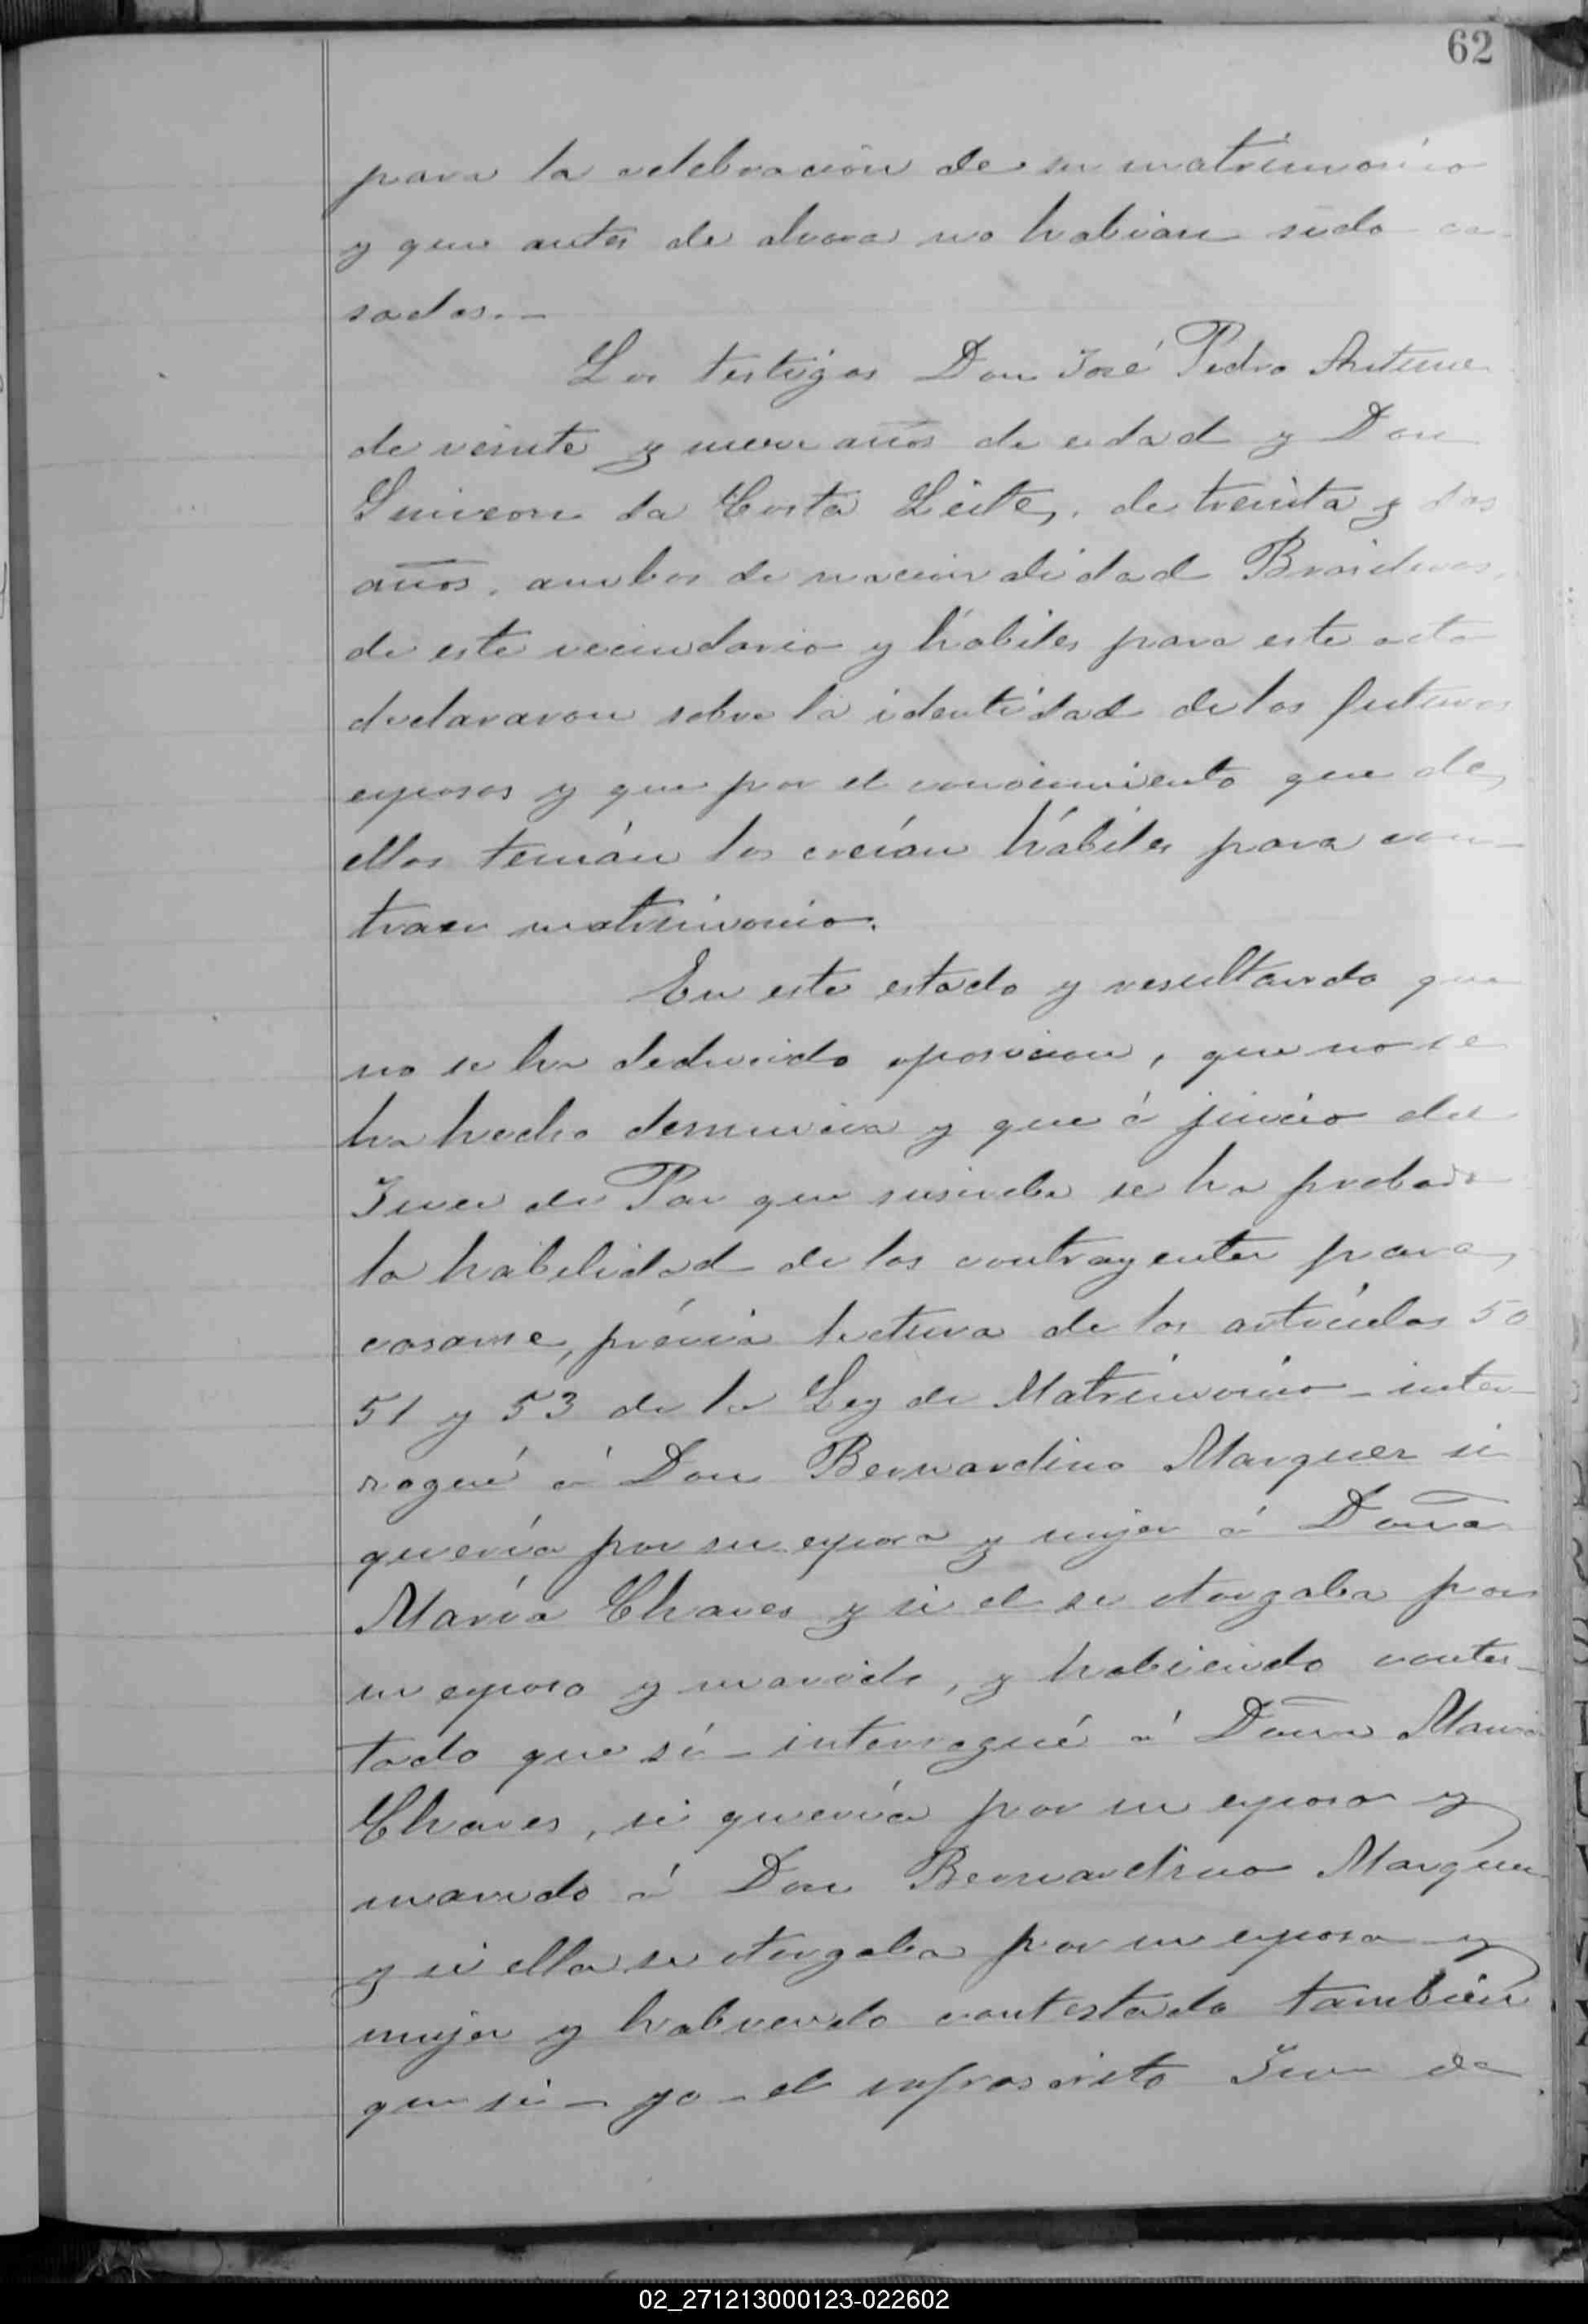 62
para la celebracion de su matrimonio
y que antes de ahora no habian sido ca-
sados.-
Los testigos Don José Pedro Antune
de veinte y nueve años de edad y Don
Simeon da Costa Leite, de treinta y dos
años, ambos de nacionalidad Brasileros,
de este vecindario y hábiles para este acto
declararon sobre la identidad de los futuros
esposos y que por el conocimiento que de
ellos tenían los creían hábiles para con-
traer matrimonio.
En este estado y resultando que
no se ha deducido oposicion, que no se
ha hecho denuncia y que á juicio del
Juez de Paz que suscribe se ha probado
la habilidad de los contrayentes para
casarse, prévia lectura de los artículos 50
51 y 53 de la Ley de Matrimonio - inter-
rogué á Don Bernardino Marquez si
quería por su esposa y mujer á Doña
María Chaves y si el se otorgaba por
su esposo y marido, y habiendo contes-
tado que sí - interrogué á Doña Maria
Chaves, si quería por su esposo y
marido á Don Bernardino Marquez
y si ella se otorgaba por su esposa y
mujer y habiendo contestado también
que si - yo - el infrascrito Juez de
02_271213000123-022602